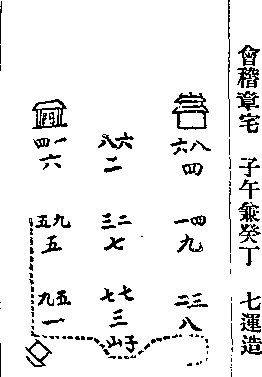 會稽章宅　子午兼癸丁　七運造
祠
四一　八六　六八
六　二　四
五九　三二　一四
五　七　九
九五　七七　二三
一　三　八
山子